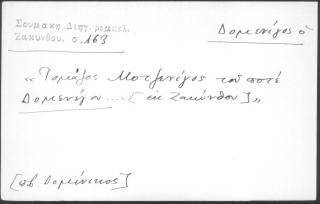 Σουμάκη, Διηγ. ρεμπελ.
Ζακύνθου, σ. 163
Δομενίγος ὁ
« Τομάζος Μοτζενίγος τοῦ ποτέ
Δομενίγου .... [ ἐκ Ζακύνθου ] »
[πβ. Δομίνικος]